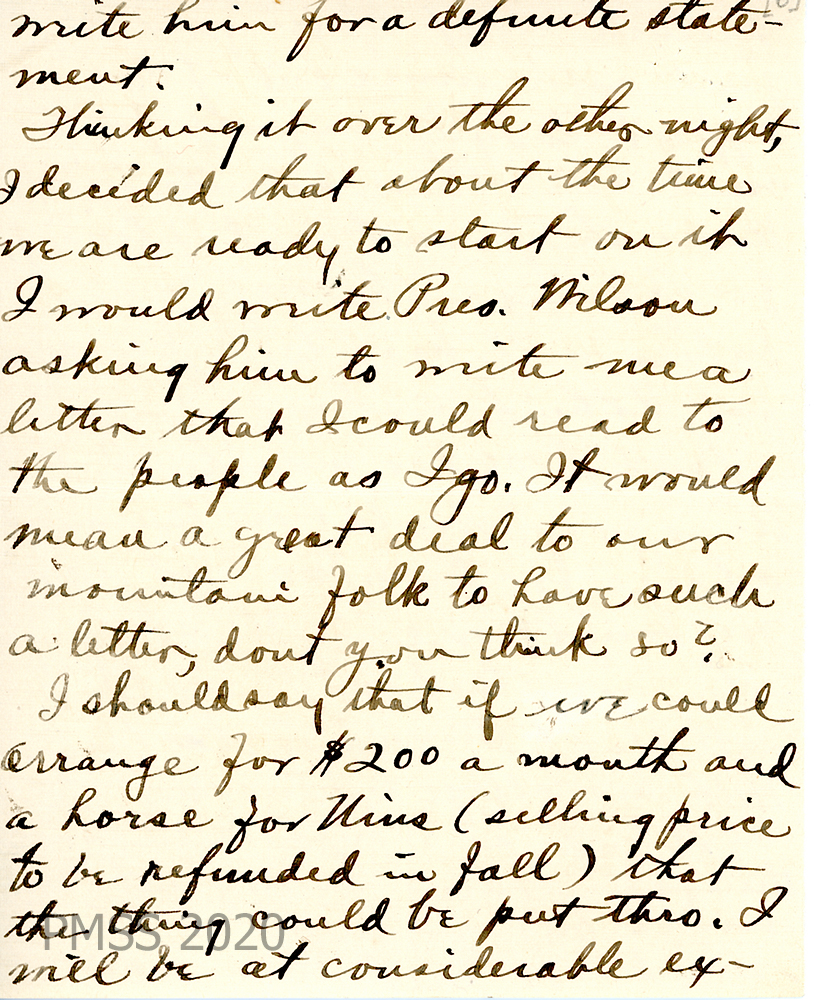 [6]
write him for a definite state-
ment.
Thinking it over the other night,
I decided that about the time
we are ready to start on it
I would write Pres. Wilson
asking him to write me a
letter that I could read to
the people as I go. It would
mean a great deal to our
mountain folk to have such
a letter, dont you think so?
I should say that if we could
arrange for $200 a month and
a horse for (selling price
to be refunded in fall) that
the thing could be put thro. I
will be at considerable ex-
PMSS 2020